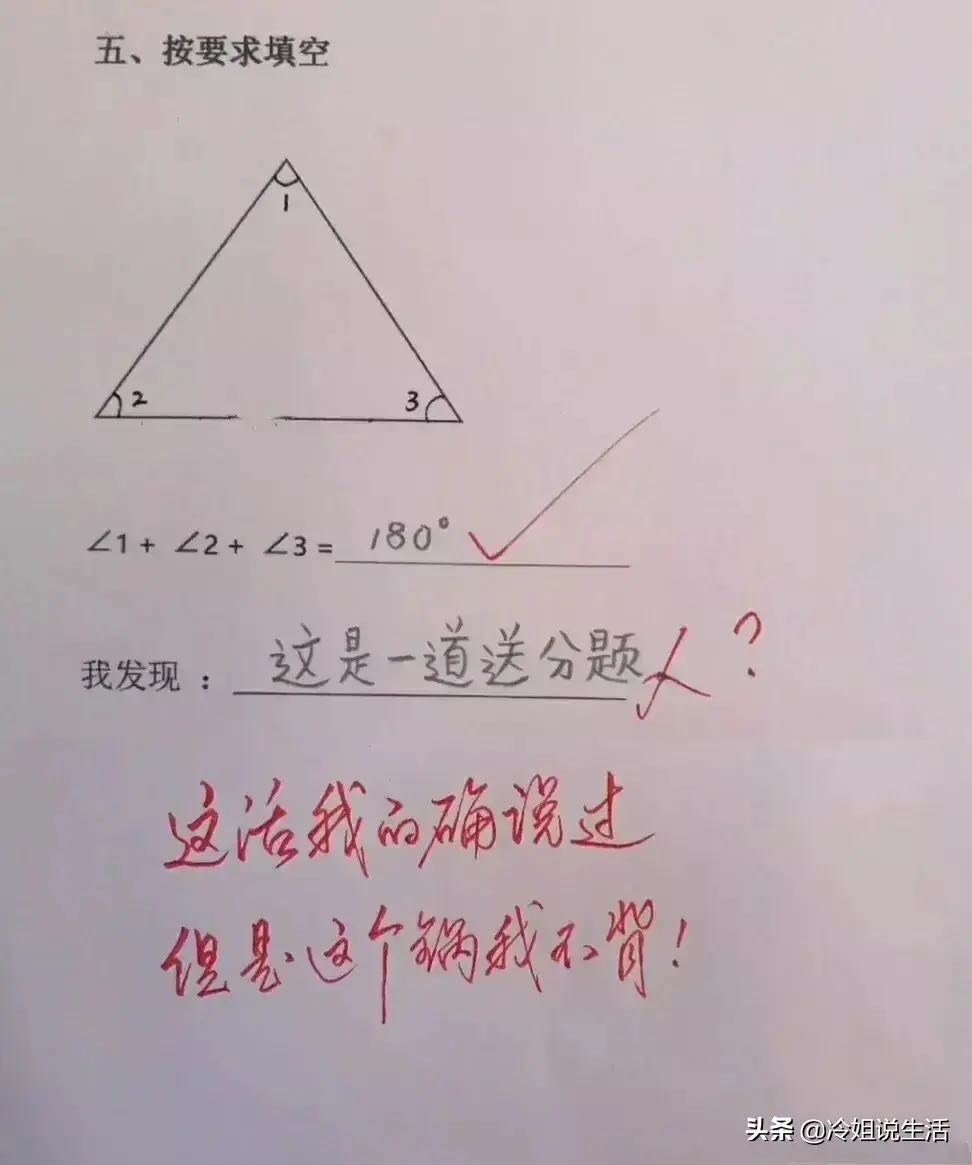 五、按要求填空
1
2
3
∠1 + ∠2 + ∠3 = 180°
我发现 ： 这是一道送分题 ?
这活我的确说过
但是这个锅我不背!
头条 @冷姐说生活